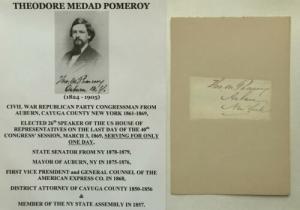 THEODORE MEDAD POMEROY
Theo. M. Pomeroy
Auburn N.Y.
(1824 - 1905)
CIVIL WAR REPUBLICAN PARTY CONGRESSMAN FROM
AUBURN, CAYUGA COUNTY NEW YORK 1861-1869,
ELECTED 26th SPEAKER OF THE US HOUSE OF
REPRESENTATIVES ON THE LAST DAY OF THE 40th
CONGRESS' SESSION, MARCH 3, 1869, SERVING FOR ONLY
ONE DAY.
STATE SENATOR FROM NY 1878-1879,
MAYOR OF AUBURN, NY IN 1875-1876,
FIRST VICE PRESIDENT and GENERAL COUNSEL OF THE
AMERICAN EXPRESS CO. IN 1868,
DISTRICT ATTORNEY OF CAYUGA COUNTY 1850-1856
&
MEMBER OF THE NY STATE ASSEMBLY IN 1857.
Theo. M. Pomeroy
Auburn
New York